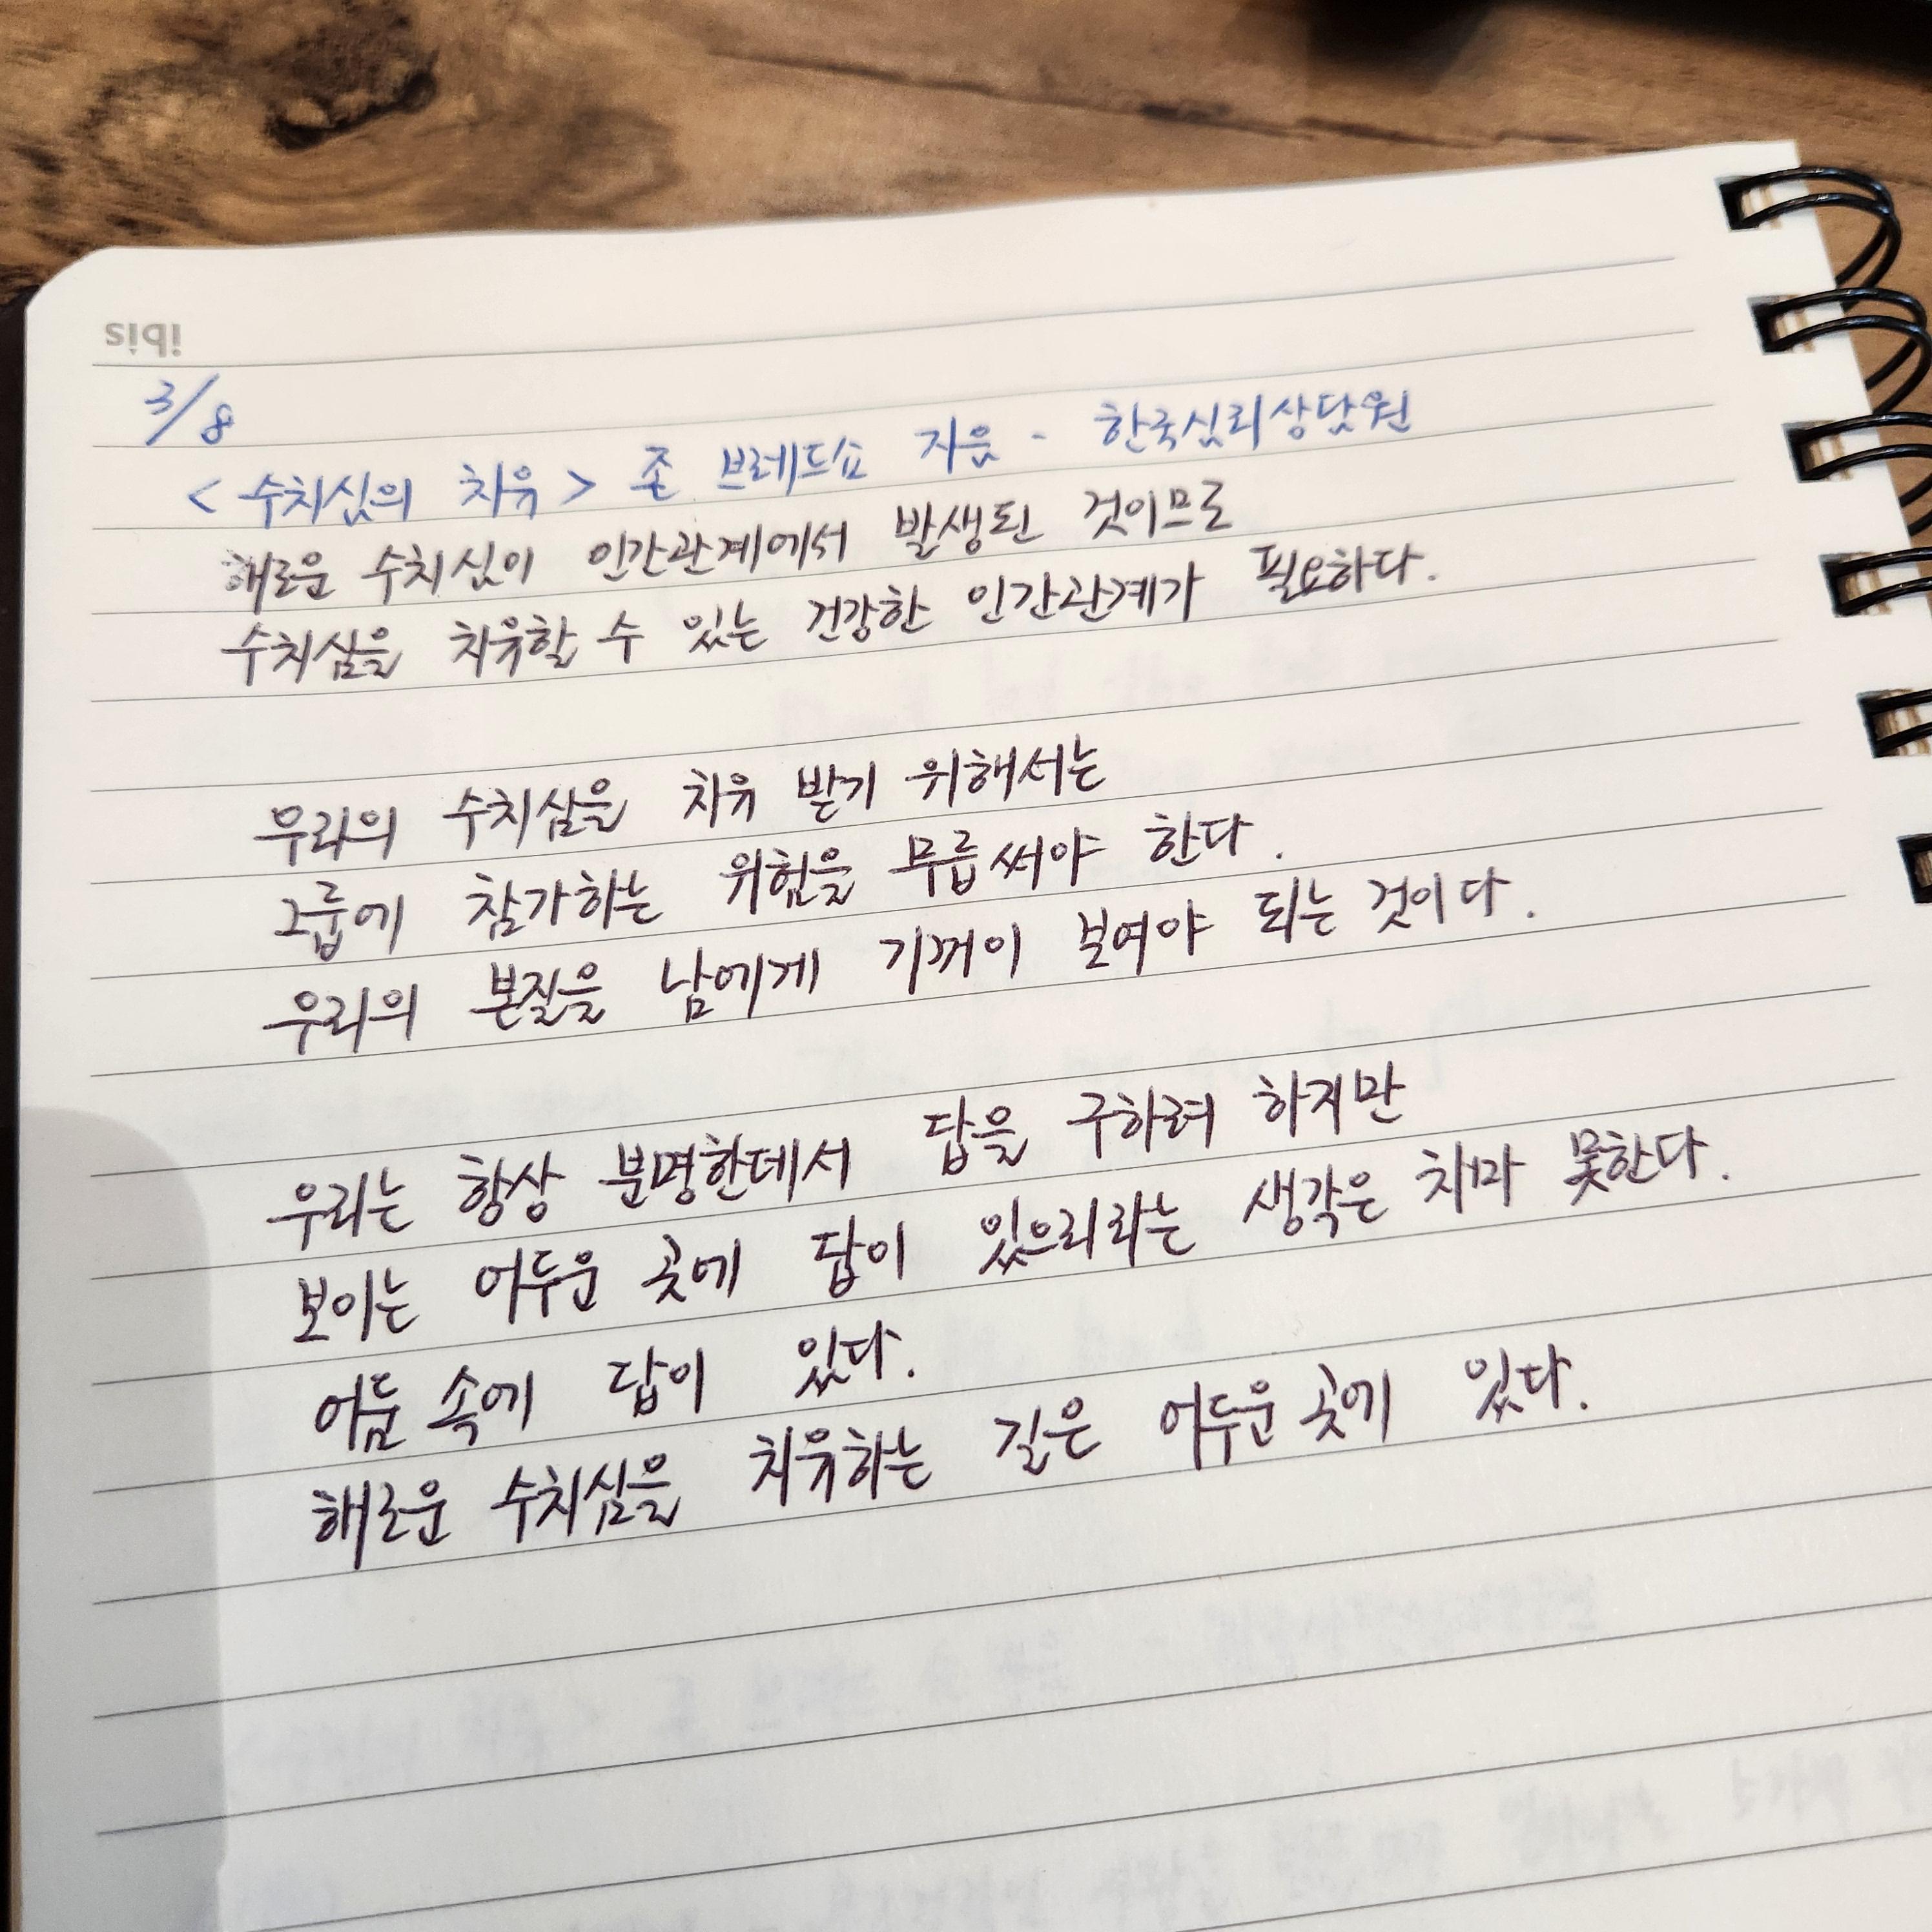 ibis
3/8
<수치심의 치유>존 브레드쇼 지음 - 한국심리상담원
해로운 수치심이 인간관계에서 발생된 것이므로
수치심을 치유할 수 있는 건강한 인간관계가 필요하다.
우리의 수치심을 치유 받기 위해서는
그룹에 참가하는 위험을 무릅써야 한다.
우리의 본질을 남에게 기꺼이 보여야 되는 것이다.
우리는 항상 분명한데서 답을 구하려 하지만
보이는 어두운 곳에 답이 있으리라는 생각은 치마 못한다.
어둠 속에 답이 있다.
해로운 수치심을 치유하는 길은 어두운 곳에 있다.